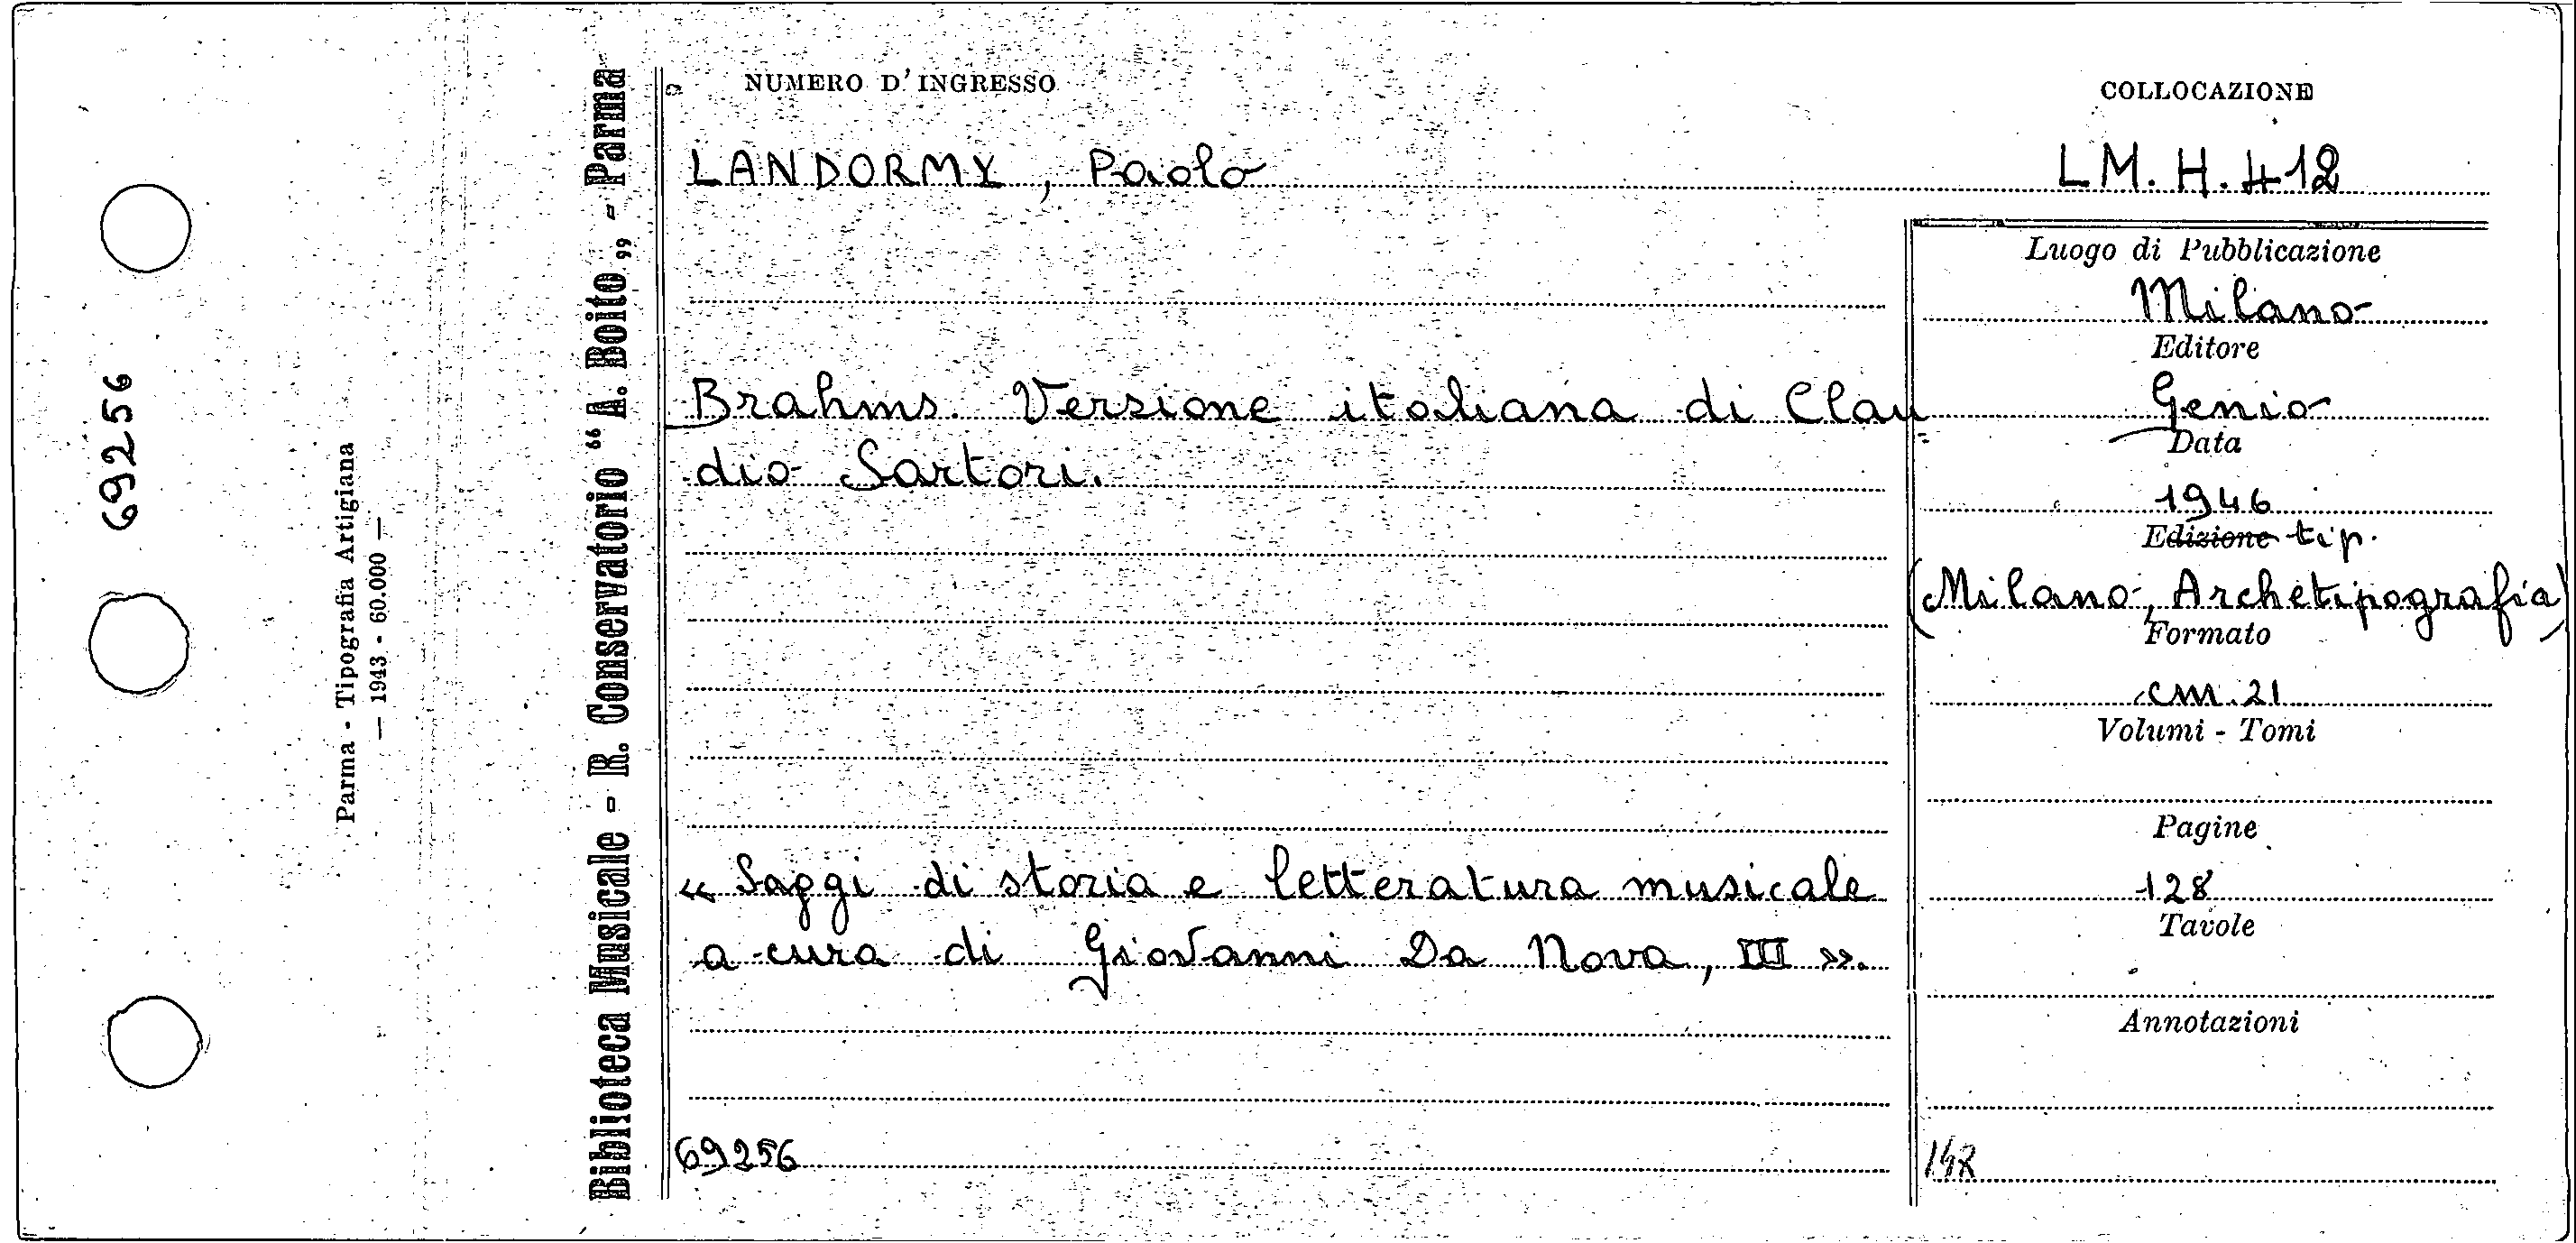 69256
Parma - Tipografia Artigiana
— 1943 - 60.000 —
Biblioteca Musicale - R. Conservatorio “ A. Boito „ - Parma
NUMERO D'INGRESSO
COLLOCAZIONE
LANDORMY, Paolo
LM. H. 412
Brahms. Versione italiana di Clau=
dio Sartori.
« Saggi di storia e letteratura musicale
a cura di Giovanni Da Nova, III ».
69256
Luogo di Pubblicazione
Milano
Editore
Genio
Data
1946
Edizione tip.
(Milano, Archetipografia)
Formato
cm. 21
Volumi - Tomi
Pagine
128
Tavole
Annotazioni